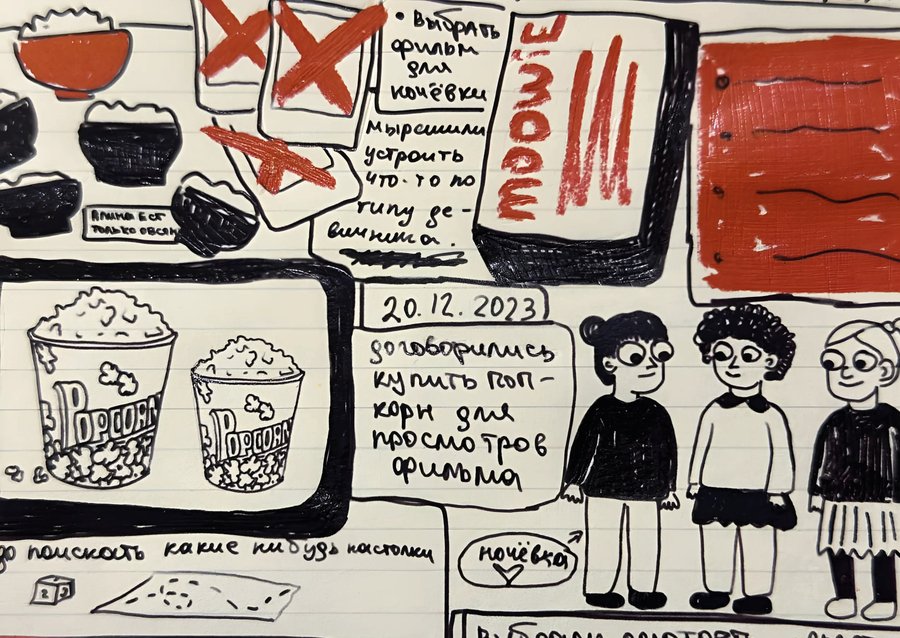 • Выбрать
фильм
для
ночёвки
Мы решили
устроить
что-то по
типу де-
вичника.
MOVIE
Алина ест
только овсян
20.12.2023
договорились
купить поп-
корн для
просмотров
фильма
POPCORN
POPCORN
до поискать какие нибудь настолки
2 3
ночёвка